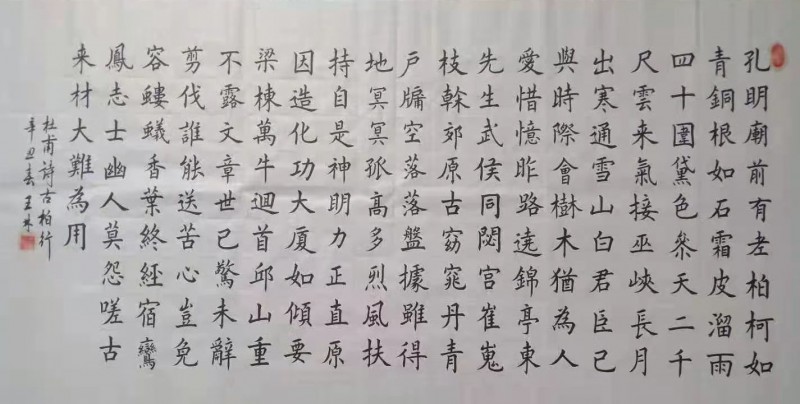 孔明廟前有老柏柯如
青銅根如石霜皮溜雨
四十圍黛色叅天二千
尺雲来氣接巫峽長月
出寒通雪山白君臣已
與時際會樹木猶為人
愛惜憶昨路遶錦亭東
先生武侯同閟宫崔嵬
枝榦郊原古窈窕丹青
戶牖空落落盤據雖得
地冥冥孤髙多烈風扶
持自是神明力正直原
因造化功大厦如傾要
梁棟萬牛迴首邱山重
不露文章世已驚未辭
剪伐誰能送苦心豈免
容螻蟻香葉終經宿鸞
鳳志士幽人莫怨嗟古
来材大難為用
杜甫詩古柏行
辛丑春王